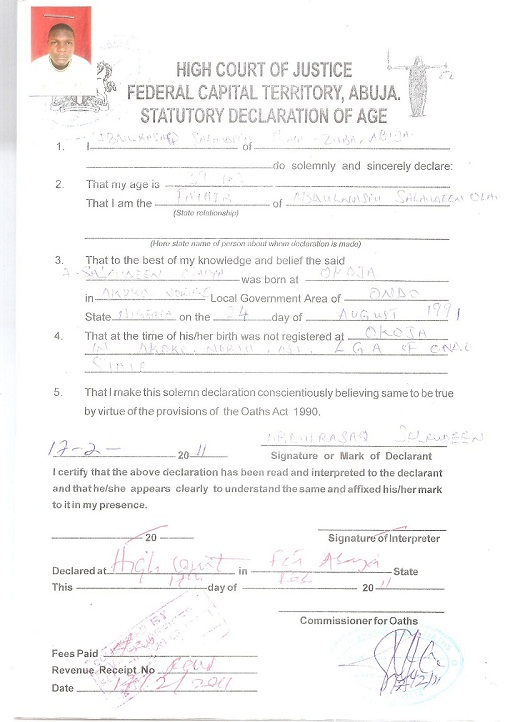 HIGH COURT OF JUSTICE
FEDERAL CAPITAL TERRITORY, ABUJA.
STATUTORY DECLARATION OF AGE
1. I ABDULRASAQ of ZUBA, ABUJA
do solemnly and sincerely declare:
2. That my age is
That I am the FATHER of SALAWEEN OLA
(State relationship)
(Here state name of person about whom declaration is made)
3. That to the best of my knowledge and belief the said
SALAWEEN was born at OKOJA
in AKOKO Local Government Area of ONDO
State NIGERIA on the 24 day of AUGUST 1991
4. That at the time of his/her birth was not registered at OKOJA
IN AKOKO NORTH LGA OF
STATE
5. That I make this solemn declaration conscientiously believing same to be true
by virtue of the provisions of the Oaths Act 1990.
ABDULRASAQ SALAWEEN
17-2- 2011 Signature or Mark of Declarant
I certify that the above declaration has been read and interpreted to the declarant
and that he/she appears clearly to understand the same and affixed his/her mark
to it in my presence.
20 Signature of Interpreter
Declared at High Court in Abuja State
This 17th day of Feb 2011
Commissioner for Oaths
Fees Paid
Revenue Receipt No
Date 17/2/2011